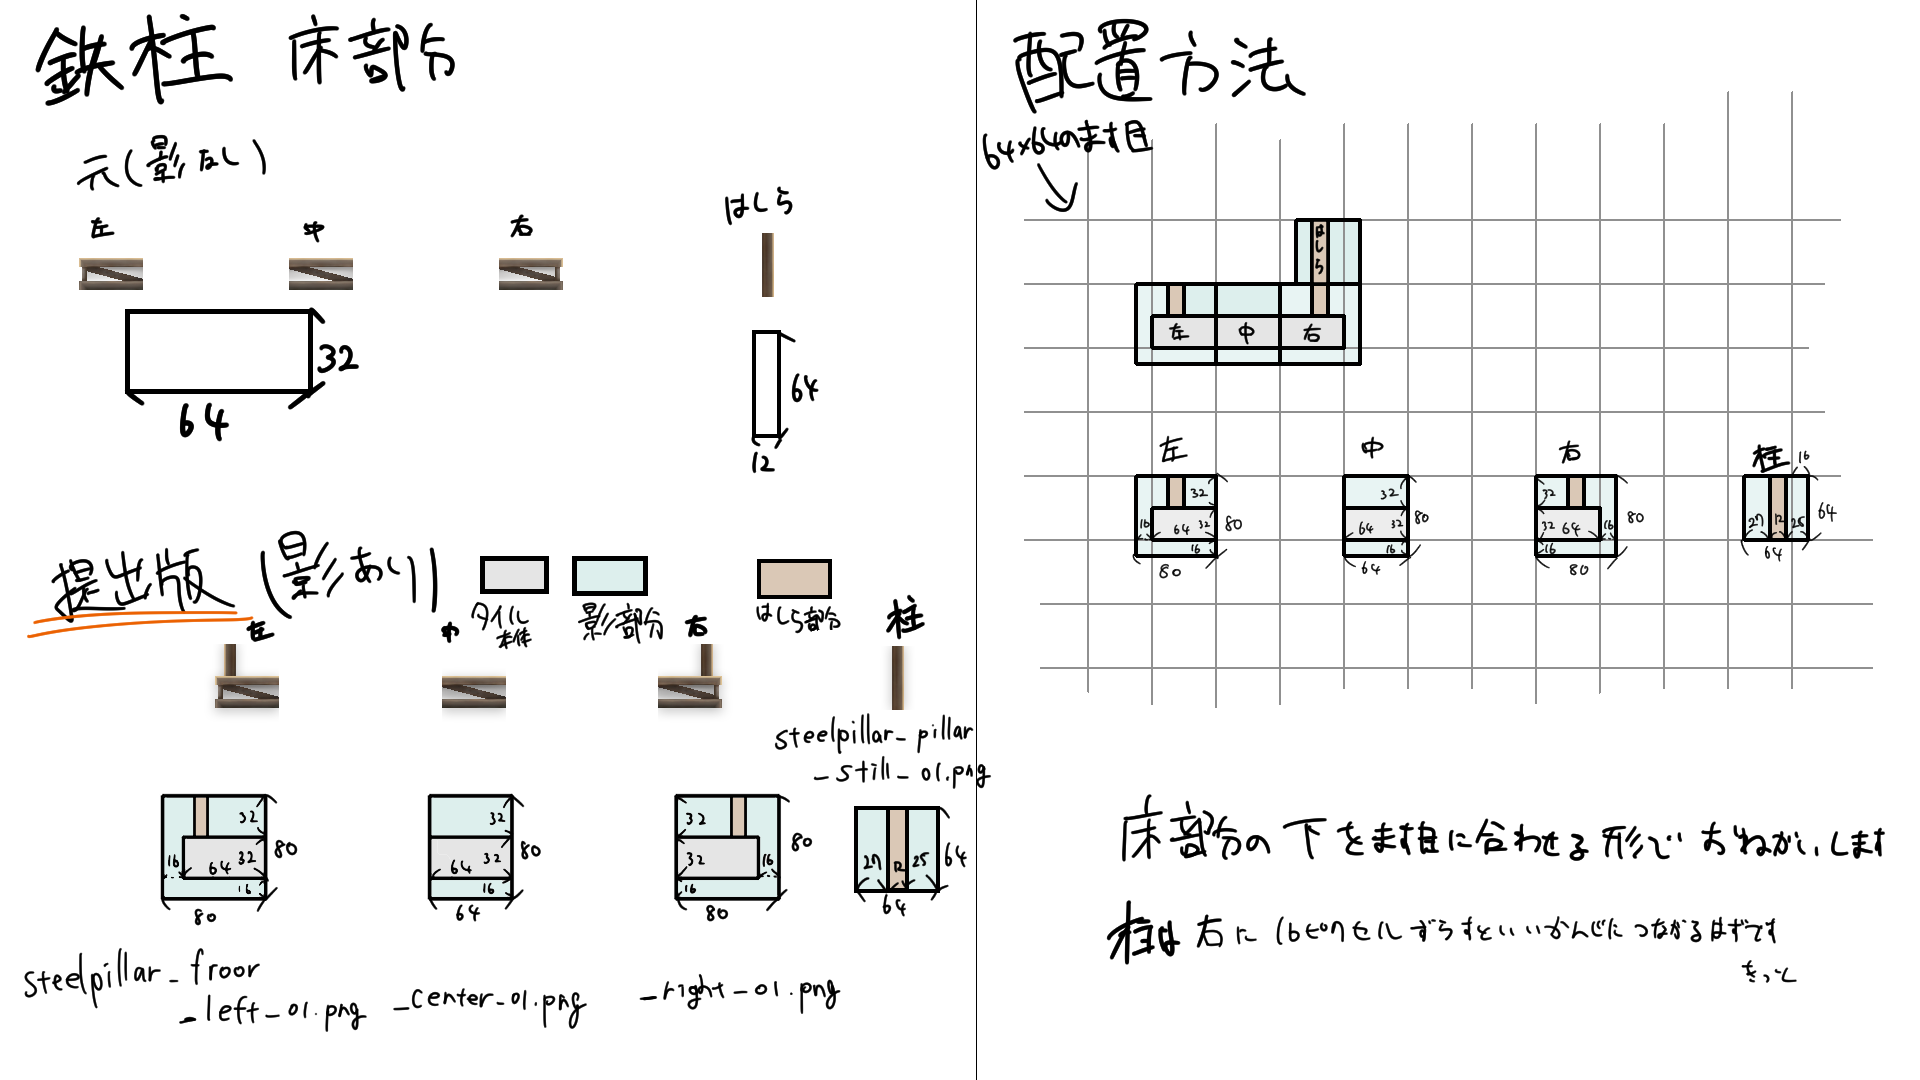 鉄柱 床部分
元(影なし)
左
中
右
はしら
32
64
64
12
提出版 (影あり)
タイル
本体
影部分
はしら部分
左
中
右
柱
steelpillar_pillar
_still_01.png
32
16
64
32
16
80
80
32
64
32
16
80
64
32
32
16
16
80
80
27
12
25
64
64
steelpillar_froor
_left_01.png
_center_01.png
_right_01.png
配置方法
64×64のます目
はしら
左
中
右
左
32
16
64
32
16
80
80
中
32
64
32
16
80
64
右
32
32
64
16
16
80
80
柱
16
27
12
25
64
64
床部分の下をます目に合わせる形でおねがいします
柱は右に16ピクセルずらすといいかんじにつながるはずです
きっと